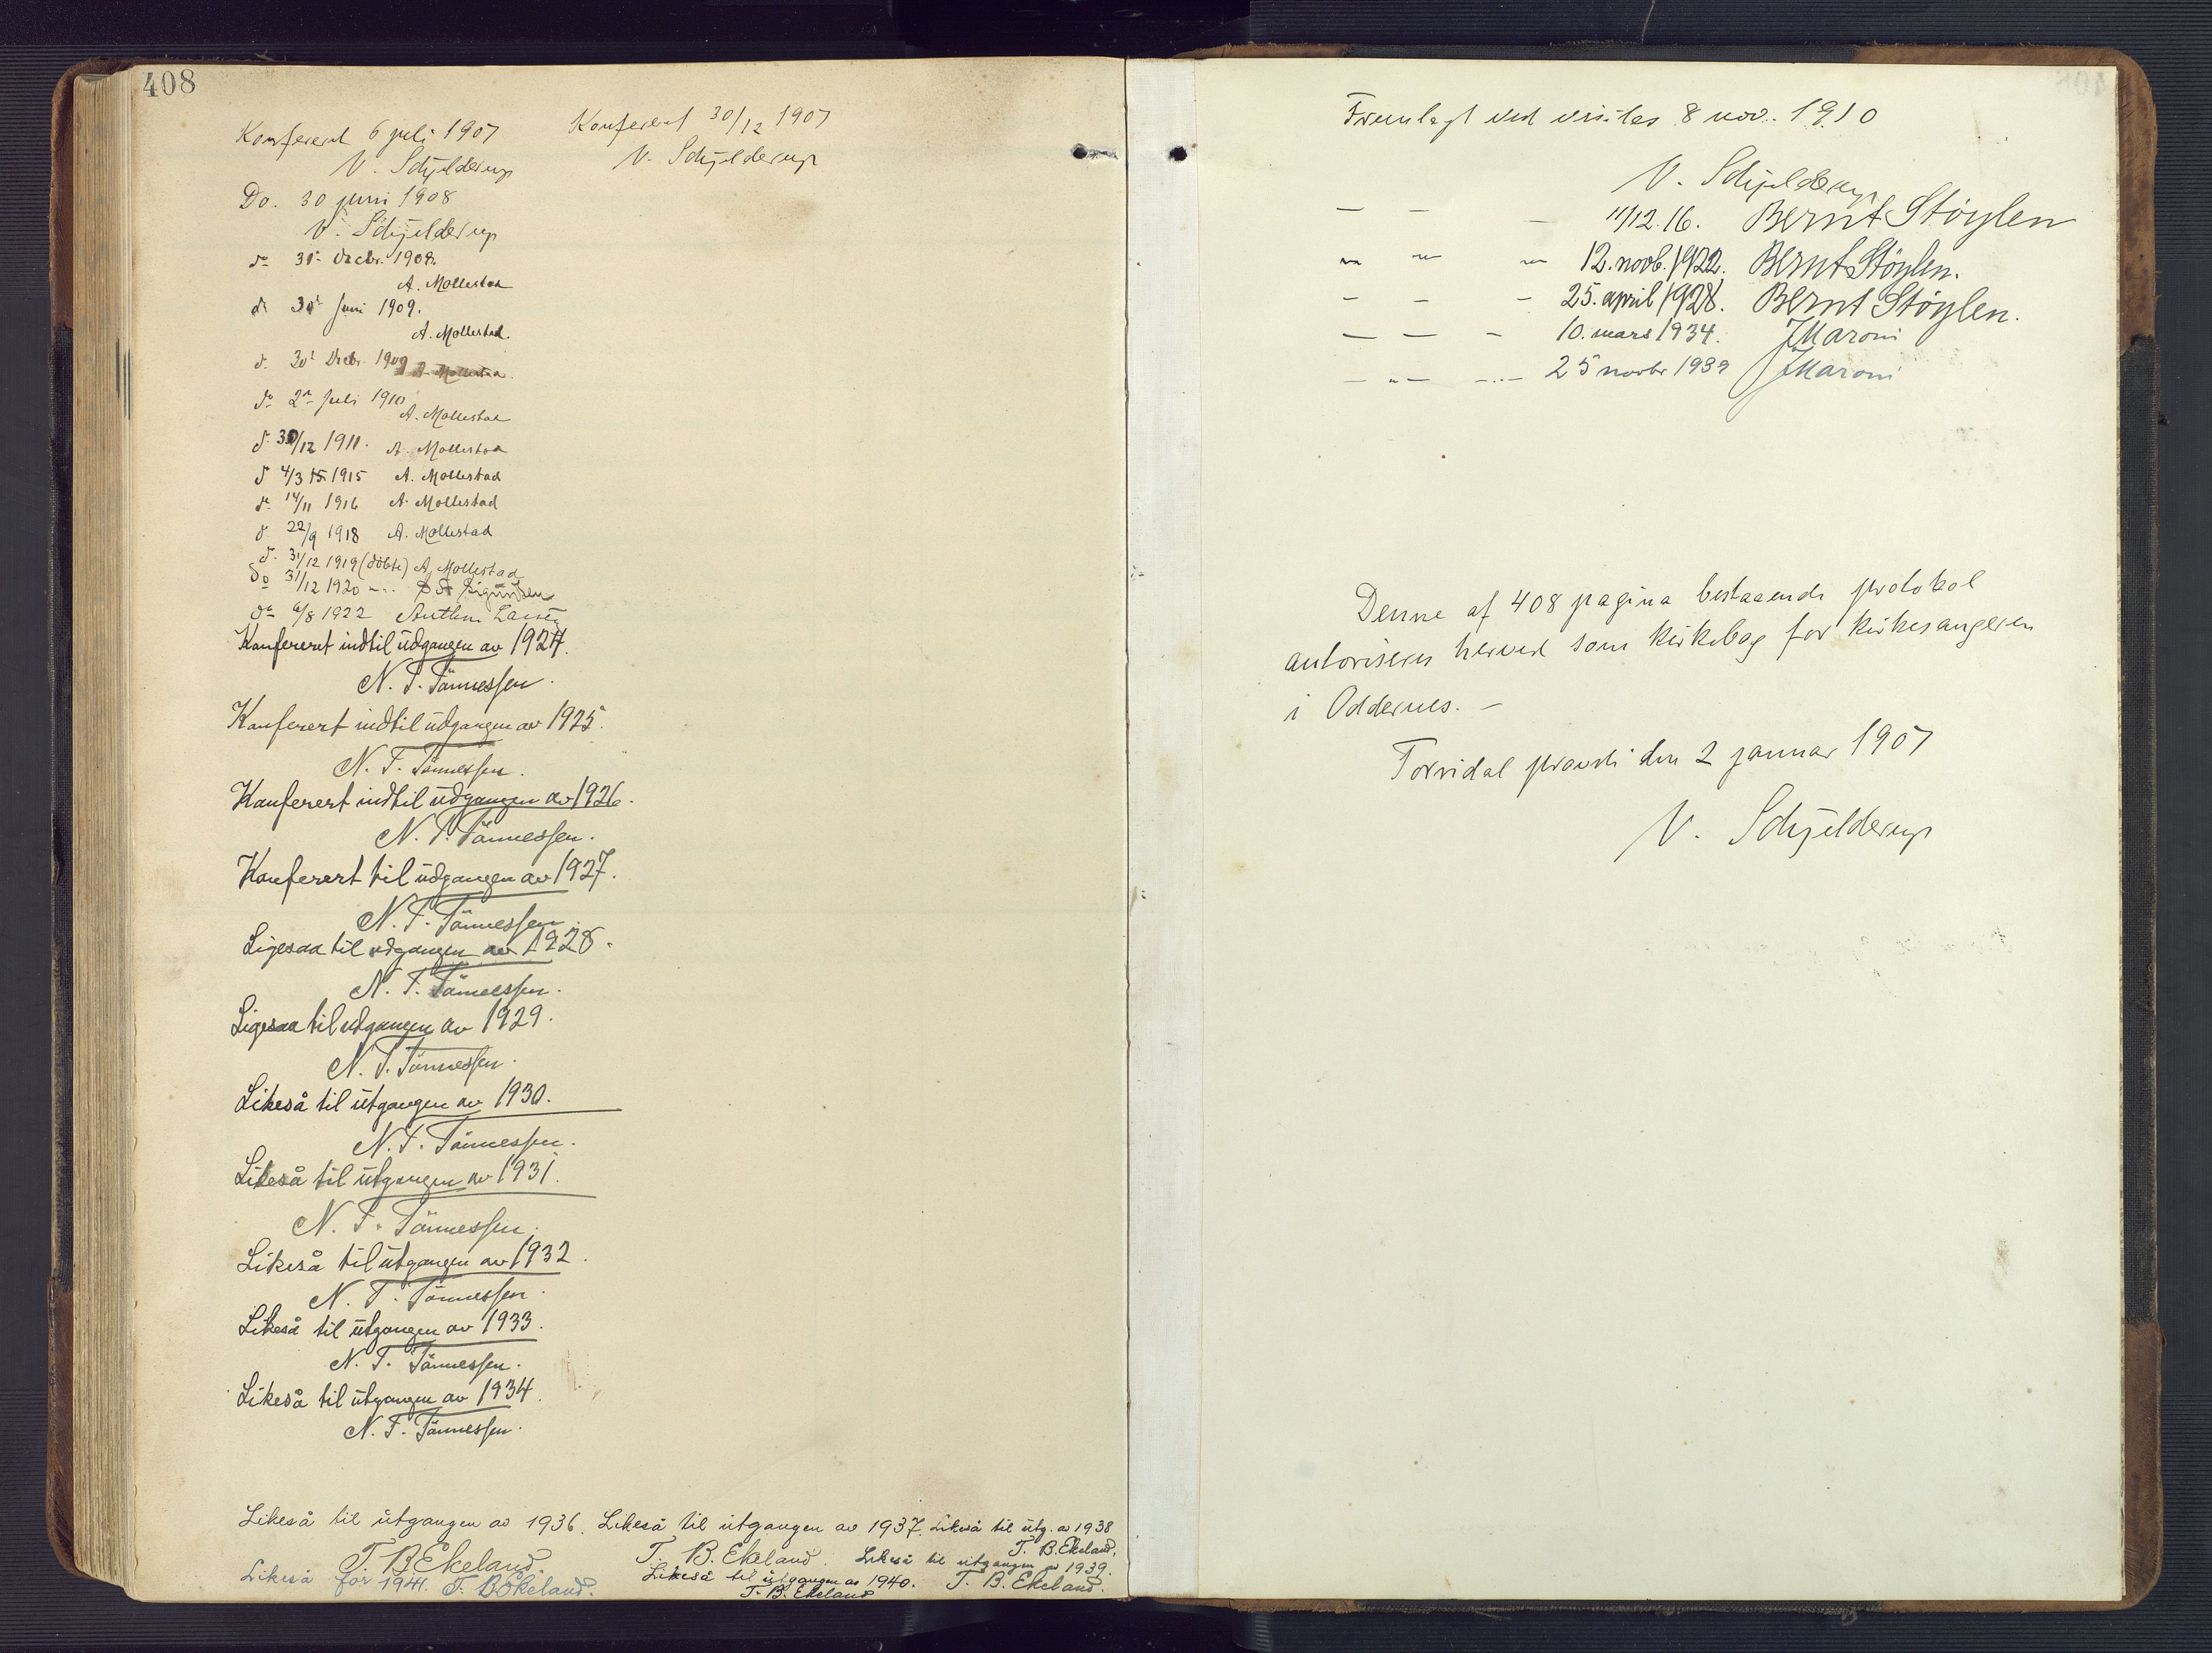 408
Konfereret 6 juli 1907
V. Schjelderup
Konfereret 30/12 1907
V. Schjelderup
Do. 30 juni 1908
V. Schjelderup
do 31 Decbr. 1908.
A. Mollestad
do 30 Juni 1909.
A. Mollestad.
do 30 Decbr. 1909 A. Mollestad.
do 2 Juli 1910
A. Mollestad
do 30/12 1911. A. Mollestad
do 4/3 15 1915 A. Mollestad
do 14/11 1916 A. Mollestad
do 22/9 1918 A. Mollestad
do 31/12 1919 (döbte) A. Mollestad
Do 31/12 1920
do 6/8 1922
Konfereret indtil üdgangen av 1924.
N. T. Tönnessen.
Konferert indtil üdgangen av 1925.
N. T. Tönnessen.
Konferert indtil üdgangen av 1926.
N. T. Tönnessen.
Konferert til üdgangen av 1927.
N. T. Tönnessen.
Ligesaa til udgangen av 1928.
N. T. Tönnessen.
Ligesaa til udgangen av 1929.
N. T. Tönnessen.
Likeså til ütgangen av 1930.
N. T. Tönnessen.
Likeså til ütgangen av 1931.
N. T. Tönnessen.
Likeså til ütgangen av 1932.
N. T. Tönnessen.
Likeså til ütgangen av 1933.
N. T. Tönnessen.
Likeså til ütgangen av 1934.
N. T. Tönnessen.
Likeså til ütgangen av 1936.
T. B. Ekeland.
Likeså til ütgangen av 1937.
T. B. Ekeland.
Likeså til ütg. av 1938
T. B. Ekeland.
Likeså til ütgangen av 1939.
T. B. Ekeland.
Likeså til ütgangen av 1940.
T. B. Ekeland
Likeså for 1941. T. B. Ekeland.
Fremlagt ved visitas 8 nov. 1910
V. Schjelderup
— — — 11/12.16. Bernt Støylen
" " " 12. novb. 1922. Bernt Støylen.
— — — 25. april 1928. Bernt Støylen.
— — — 10. mars 1934. J Maroni
— " — — " — 25 novbr 1939 J Maroni
Denne af 408 pagina bestaaende protokol
autoriseres herved som kirkebog for kirkesangeren
i Oddernes. —
Torridal provsti den 2 januar 1907
V. Schjelderup